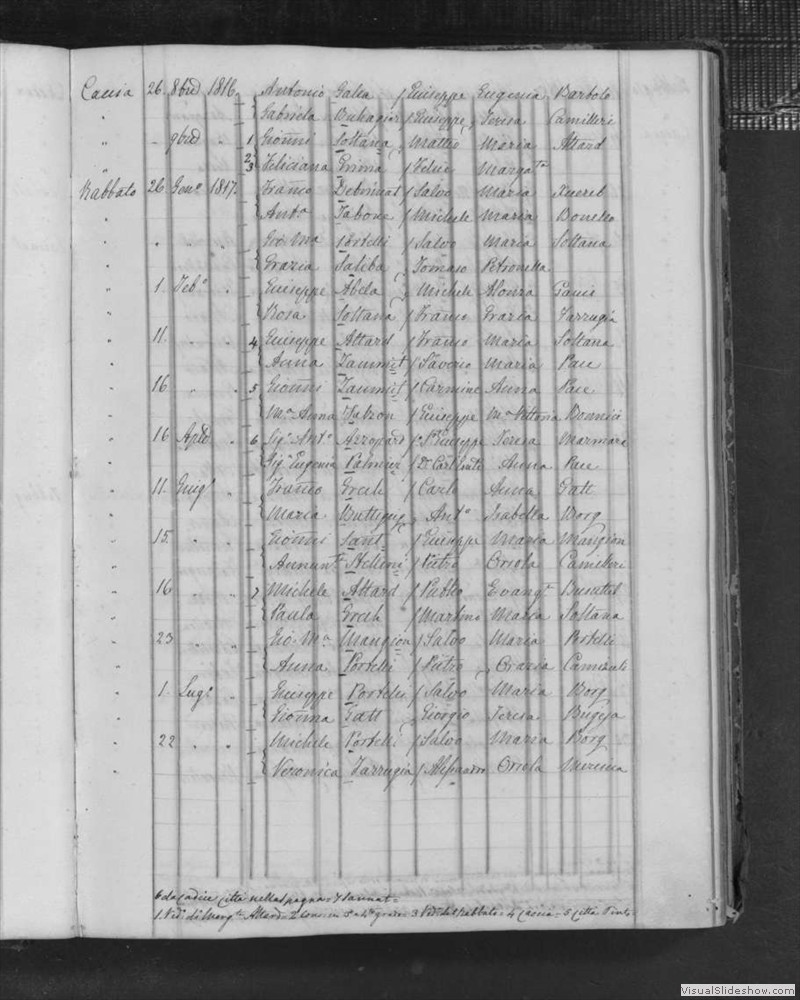 Caccia 26 8bre 1816. Antonio Galea / Giuseppe Eugenia Bartolo
" Gabriela Buhagiar / Giuseppe, Teresa Camilleri
" " 9bre " 1 Gioñni Soltana, Matteo Maria Attard
" 2/3 Feliciana Grima / Felice Margta
Rabbato 26 Geno 1817. Franco Debrincat / Salvo Maria Xuereb
" Anto Tabone / Michele Maria Bonello
" " " Gio Ma Portelli / Salvo Maria Soltana
" Grazia Saliba, Tomaso Petronella
" 1 Febo " Giuseppe Abela, Michele Alonza
" Rosa Soltana / Franco Grazia Farrugia
" 11. " " 4 Giuseppe Attard / Franco Maria Soltana
" Anna Zammit / Saverio Maria Pace
" 16 " " 5 Gioñni Zammit / Carmine Anna Pace
" Ma Anna / Giuseppe Ma Vittoria Bonnici
" 16 Aple " 6 Sigr Anto Azzopard / Sr Giuseppe Teresa
" Siga Eugenia Palmier / Dr Anna Pace
" 11. Giugo " Franco Grech / Carlo Anna Gatt
" Maria Buttigieg, Anto Isabella Borg
" 15. " " Gioñni Sant / Giuseppe Maria Mangion
" Annunta Stellini / Pietro Orsola Camilleri
" 16 " " 7 Michele Attard / Publio Evangta Busuttil
" Paula Grech / Martino Maria Soltana
" 23 " " Gio Ma Mangion / Salvo Maria Portelli
" Anna Portelli / Pietro, Grazia
" 1. Lugo " Giuseppe Portelli / Salvo Maria Borg
" Gioñna Gatt, Giorgio Teresa Bugeja
" 22 " " Michele Portelli / Salvo Maria Borg
" Veronica Farrugia / Orsola
6 da Cadice città nella Spagna = 7 Sannat =
1. Ved: di Margta Attard = 2 Cons: in 3o e 4o grado = 3 Ved: del Rabbato = 4 Caccia = 5 Città
VisualSlideshow.com